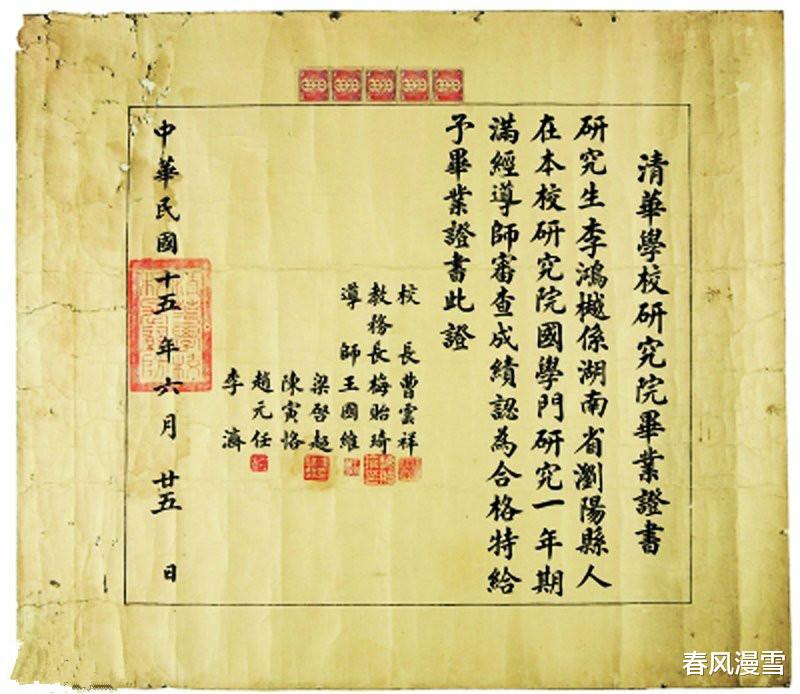 清華學校研究院畢業證書
研究生李鴻樾係湖南省瀏陽縣人
在本校研究院國學門研究一年期
滿經導師審查成績認為合格特給
予畢業證書此證
校長曹雲祥
教務長梅貽琦
導師王國維
梁啓超
陳寅恪
趙元任
李濟
中華民國十五年六月廿五日
春风漫雪